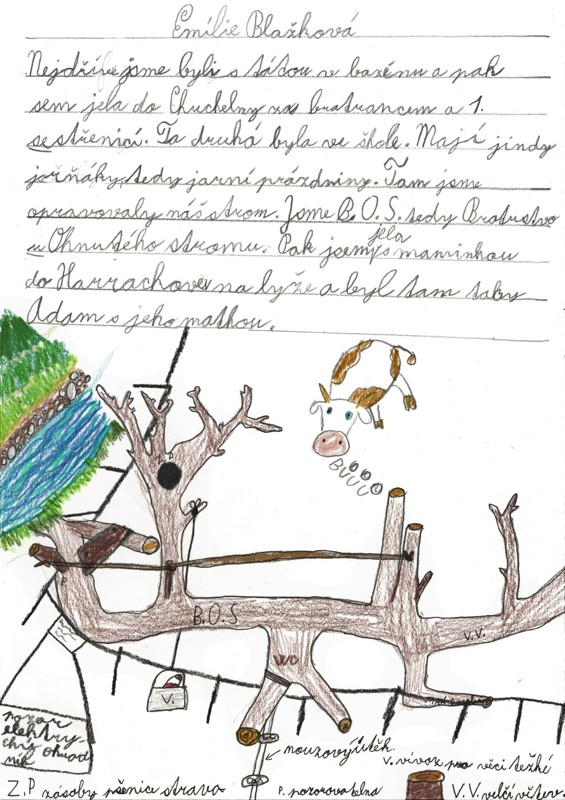 Emílie Blažková
Nejdříve jsme byli s tátou v bazénu a pak
sem jela do Chuchelny za bratrancem a 1.
sestřenicí. Ta druhá byla ve škole. Mají jindy
jarňáky, tedy jarní prázdniny. Tam jsme
opravovaly náš strom. Jsme B.O.S. tedy Bratrstvo
u Ohnutého stromu. Pak jsem jela s maminkou
do Harrachově na lyže a byl tam taky
Adam s jeho matkou.
BUUUU
B.O.S
WC
V.V.
V.
pozor
elektry
chu ohrad
ník
nouzový útěk
V. vývoz pro věci těžké
Z.P zásoby pšenice strava
P. pozorovatelna
V.V. velčí výtev.